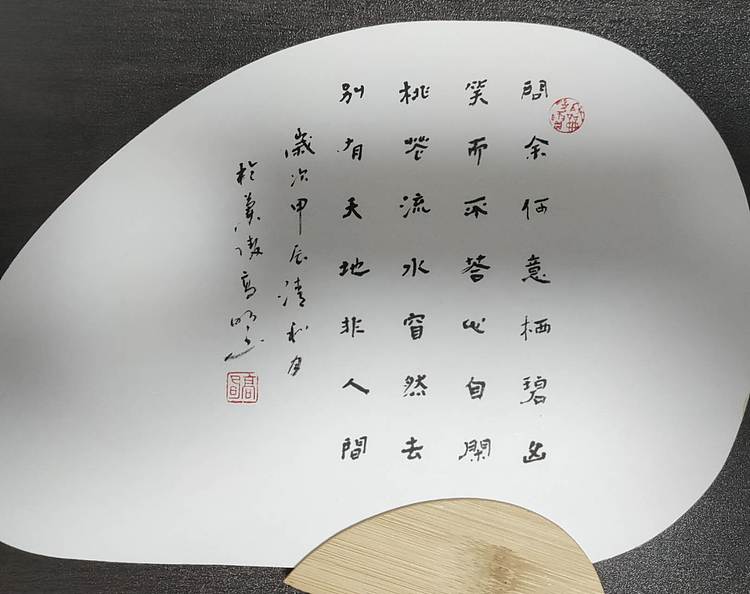 問余何意栖碧山
笑而不答心自閑
桃花流水窅然去
別有天地非人間
歲次甲辰清和月
於陵高明